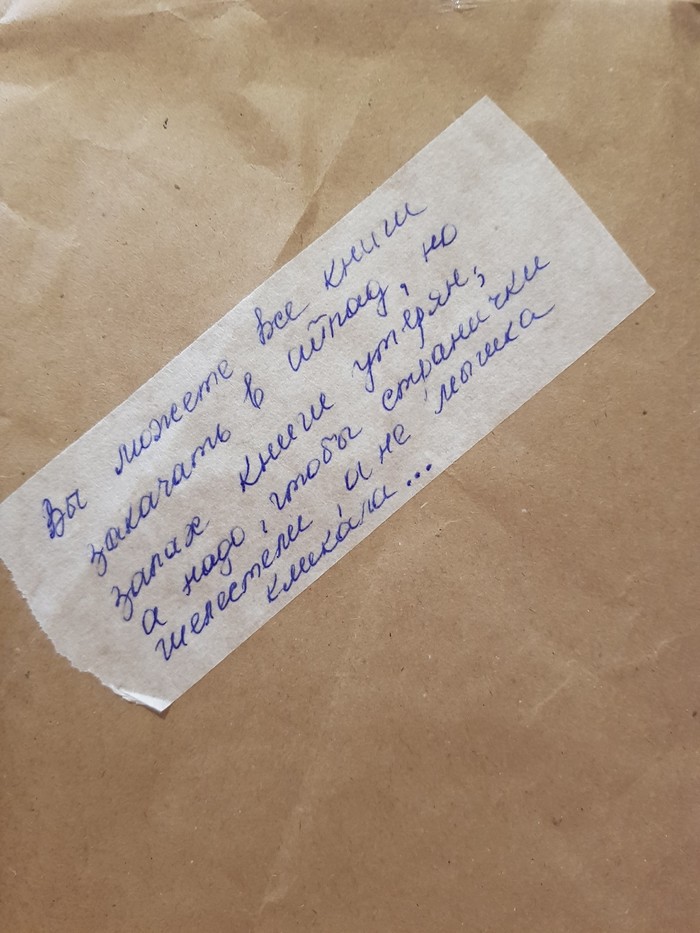 Вы можете все книги
закачать в айпад, но
запах книги утерян,
а надо, чтобы странички
шелестели, а не мышка
кликала...